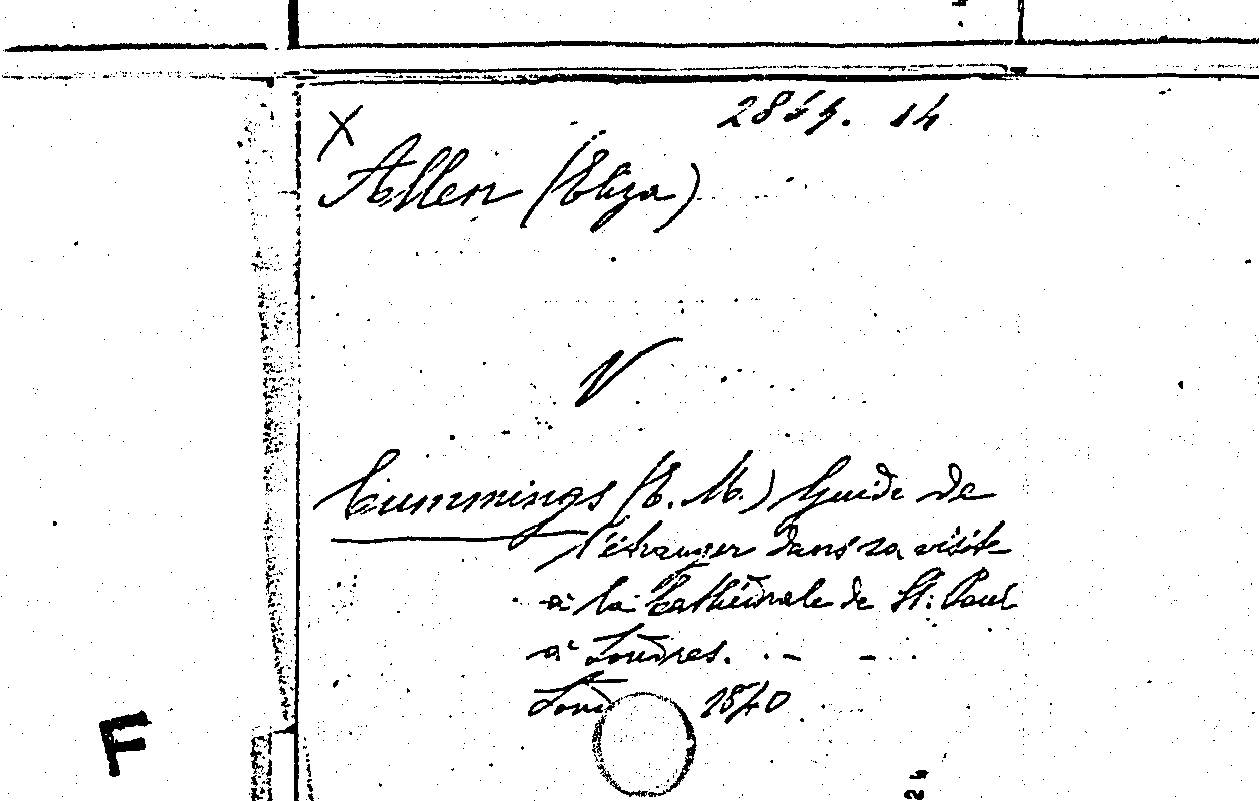 X
Allen (Eliza)
V
Cummings (E. M.) Guide de
l'étranger dans sa visite
à la Cathédrale de St. Paul
à Londres. . - - .
Lond 1840
F